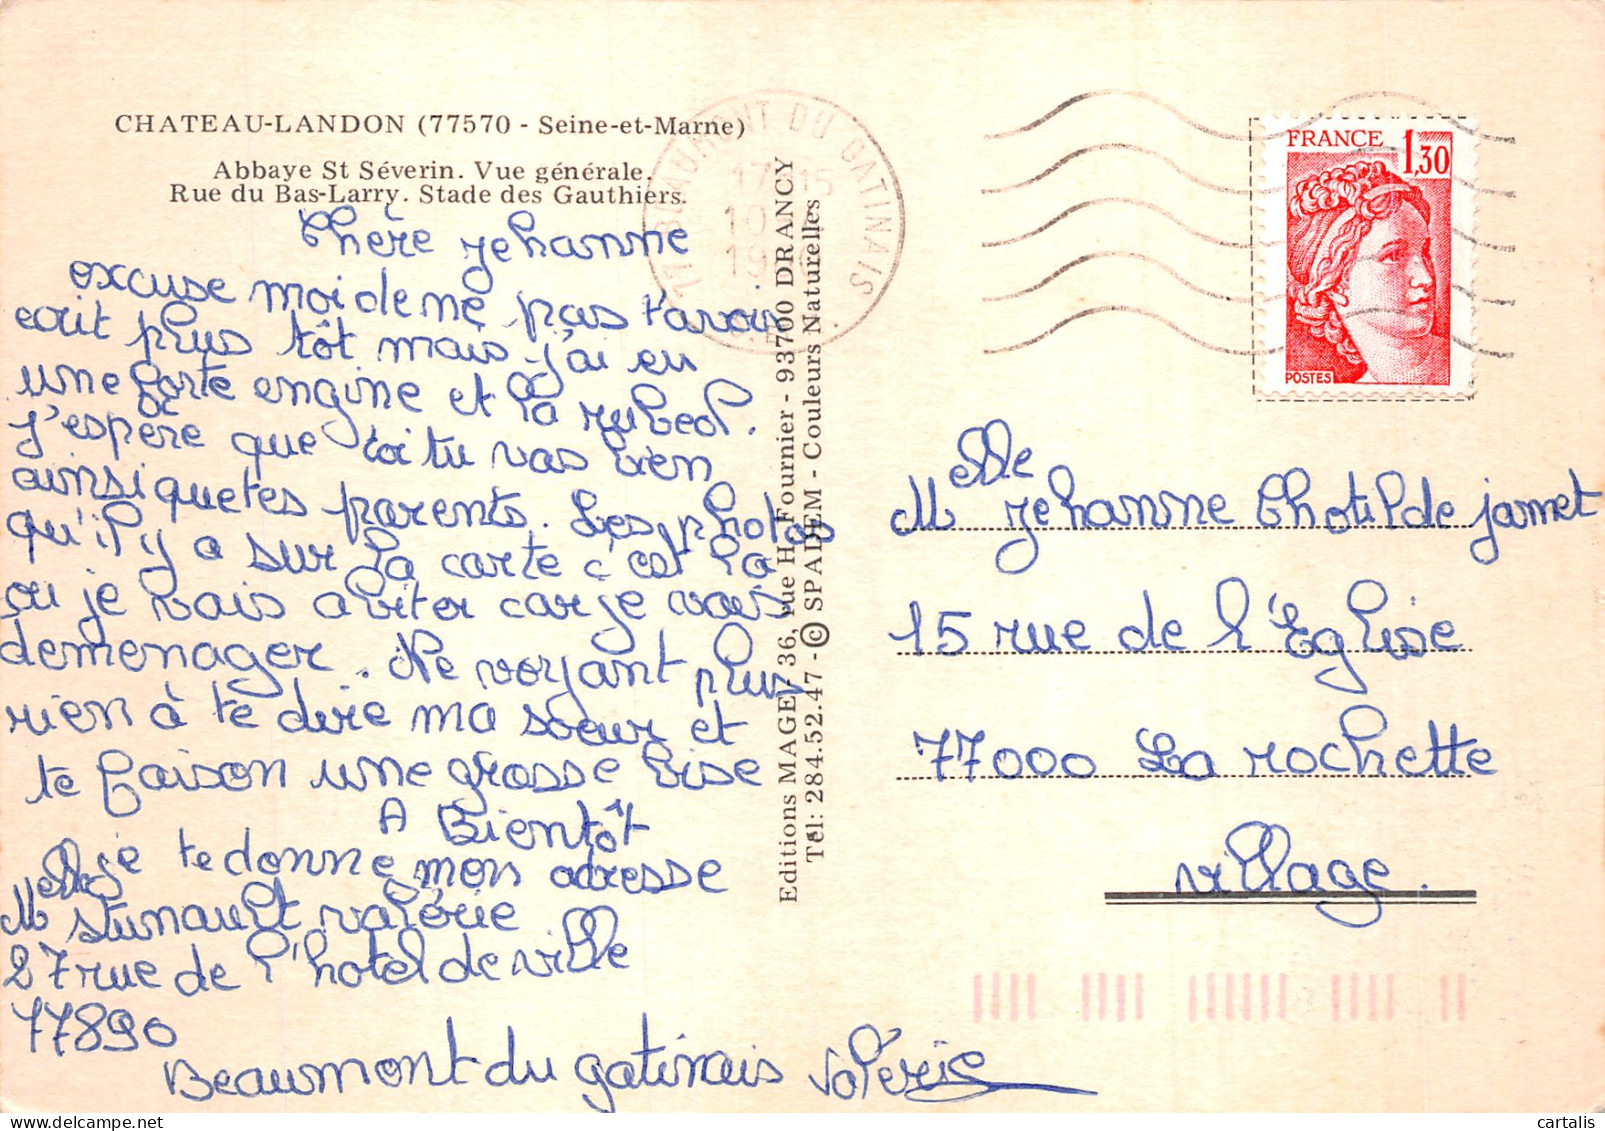 CHATEAU-LANDON (77570 - Seine-et-Marne)
Abbaye St Séverin. Vue générale.
Rue du Bas-Larry. Stade des Gauthiers.
Chère jehanne
excuse moi de ne pas t'avoir
ecrit plus tôt mais j'ai eu
une forte engine et la rubeol.
J'espère que toi tu vas bien
ainsi que tes parents. Les photos
qu'il y a sur la carte c'est la
ou je vais abiter car je vais
demenager. Ne voyant plus
rien à te dire ma soeur et
te faison une grosse bise
A Bientôt
je te donne mon adresse
Melle Stunault valérie
27 rue de l'hotel de ville
77890
Beaumont du gatinais Valérie
Editions MAGE - 36, rue H. Fournier - 93700 DRANCY
Tél: 284.52.47 - © SPADEM - Couleurs Naturelles
77 BEAUMONT DU GATINAIS
17 15
10
FRANCE 1,30
POSTES
Melle jehanne Chotilde jamet
15 rue de l'Eglise
77000 La rochette
village.
cartalis